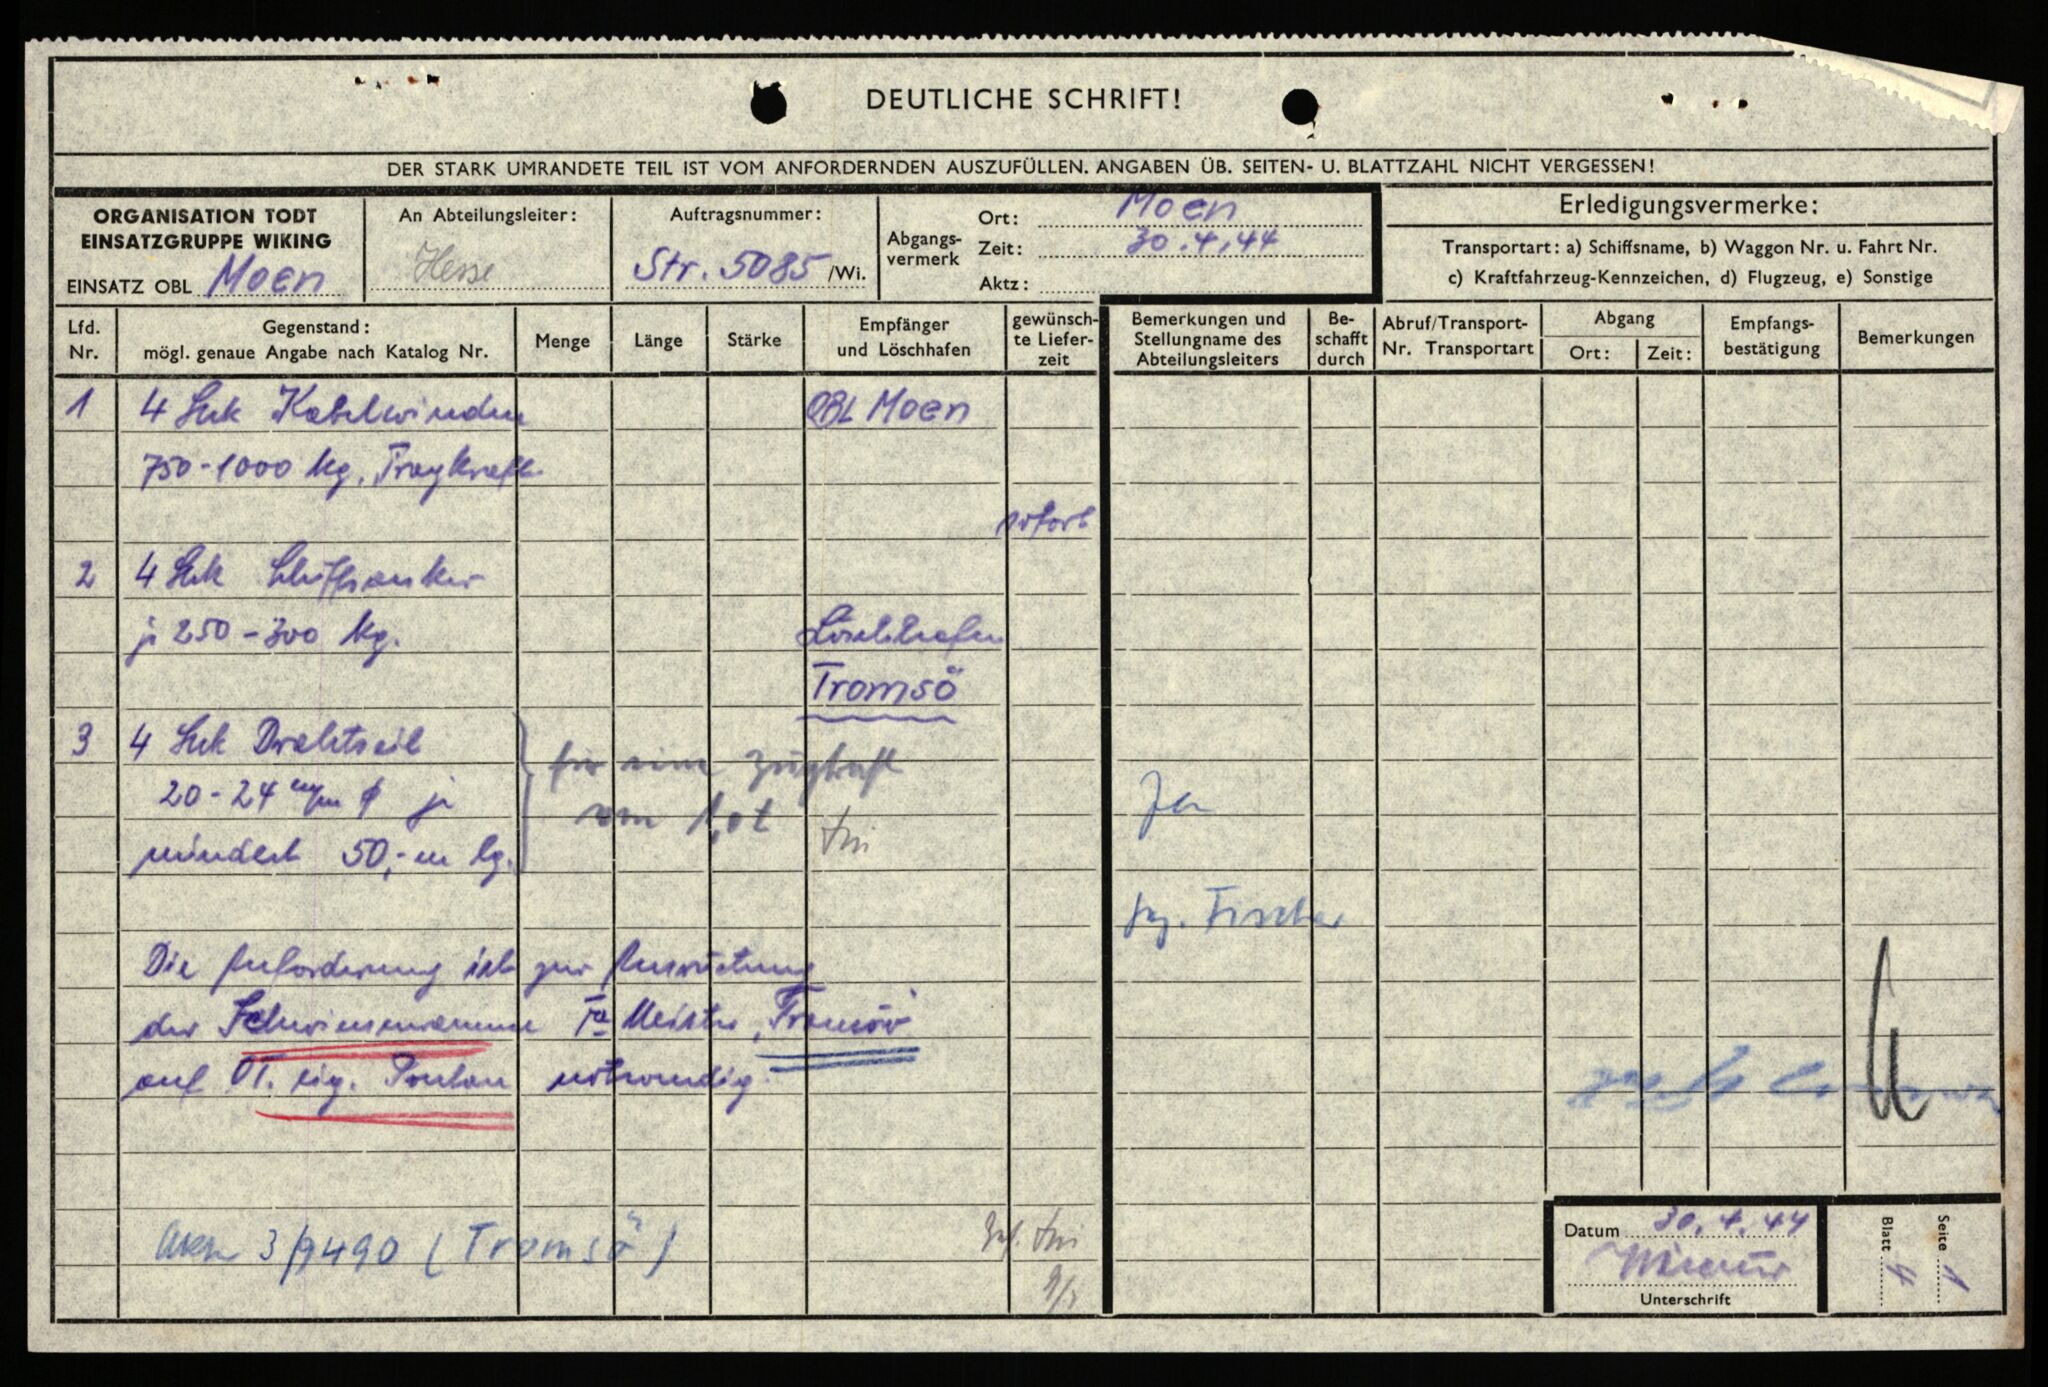 DEUTLICHE SCHRIFT!
DER STARK UMRANDETE TEIL IST VOM ANFORDERNDEN AUSZUFÜLLEN. ANGABEN ÜB. SEITEN- U. BLATTZAHL NICHT VERGESSEN!
ORGANISATION TODT
EINSATZGRUPPE WIKING
EINSATZ OBL Moen
An Abteilungsleiter:
Hesse
Auftragsnummer:
Str. 5085 /Wi.
Abgangs-
vermerk
Ort: Moen
Zeit: 30.4.44
Aktz:
Erledigungsvermerke:
Transportart: a) Schiffsname, b) Waggon Nr. u. Fahrt Nr.
c) Kraftfahrzeug-Kennzeichen, d) Flugzeug, e) Sonstige
Lfd.
Nr.
Gegenstand:
mögl. genaue Angabe nach Katalog Nr.
Menge
Länge
Stärke
Empfänger
und Löschhafen
gewünsch-
te Liefer-
zeit
Bemerkungen und
Stellungname des
Abteilungsleiters
Be-
schafft
durch
Abruf/Transport-
Nr. Transportart
Abgang
Ort:
Zeit:
Empfangs-
bestätigung
Bemerkungen
1 4 Stck Kabelwinden OBL Moen
750-1000 kg. Tragkraft
sofort
2 4 Stck Schiffsanker
je 250-300 kg.
Löschhafen
Tromsö
3 4 Stck Drahtseil
20-24 m/m ϕ je
mindest 50,-m lg.
für eine Zugkraft
von 1,0t
Ja
Fischer
Die Anforderung ist zur Ausrüstung
der Schwimmramme Fa Meister, Tromsö
auf OT. eig. Ponton notwendig.
3/9490 (Tromsö)
Datum 30.4.44
Unterschrift
Blatt 4
Seite 1